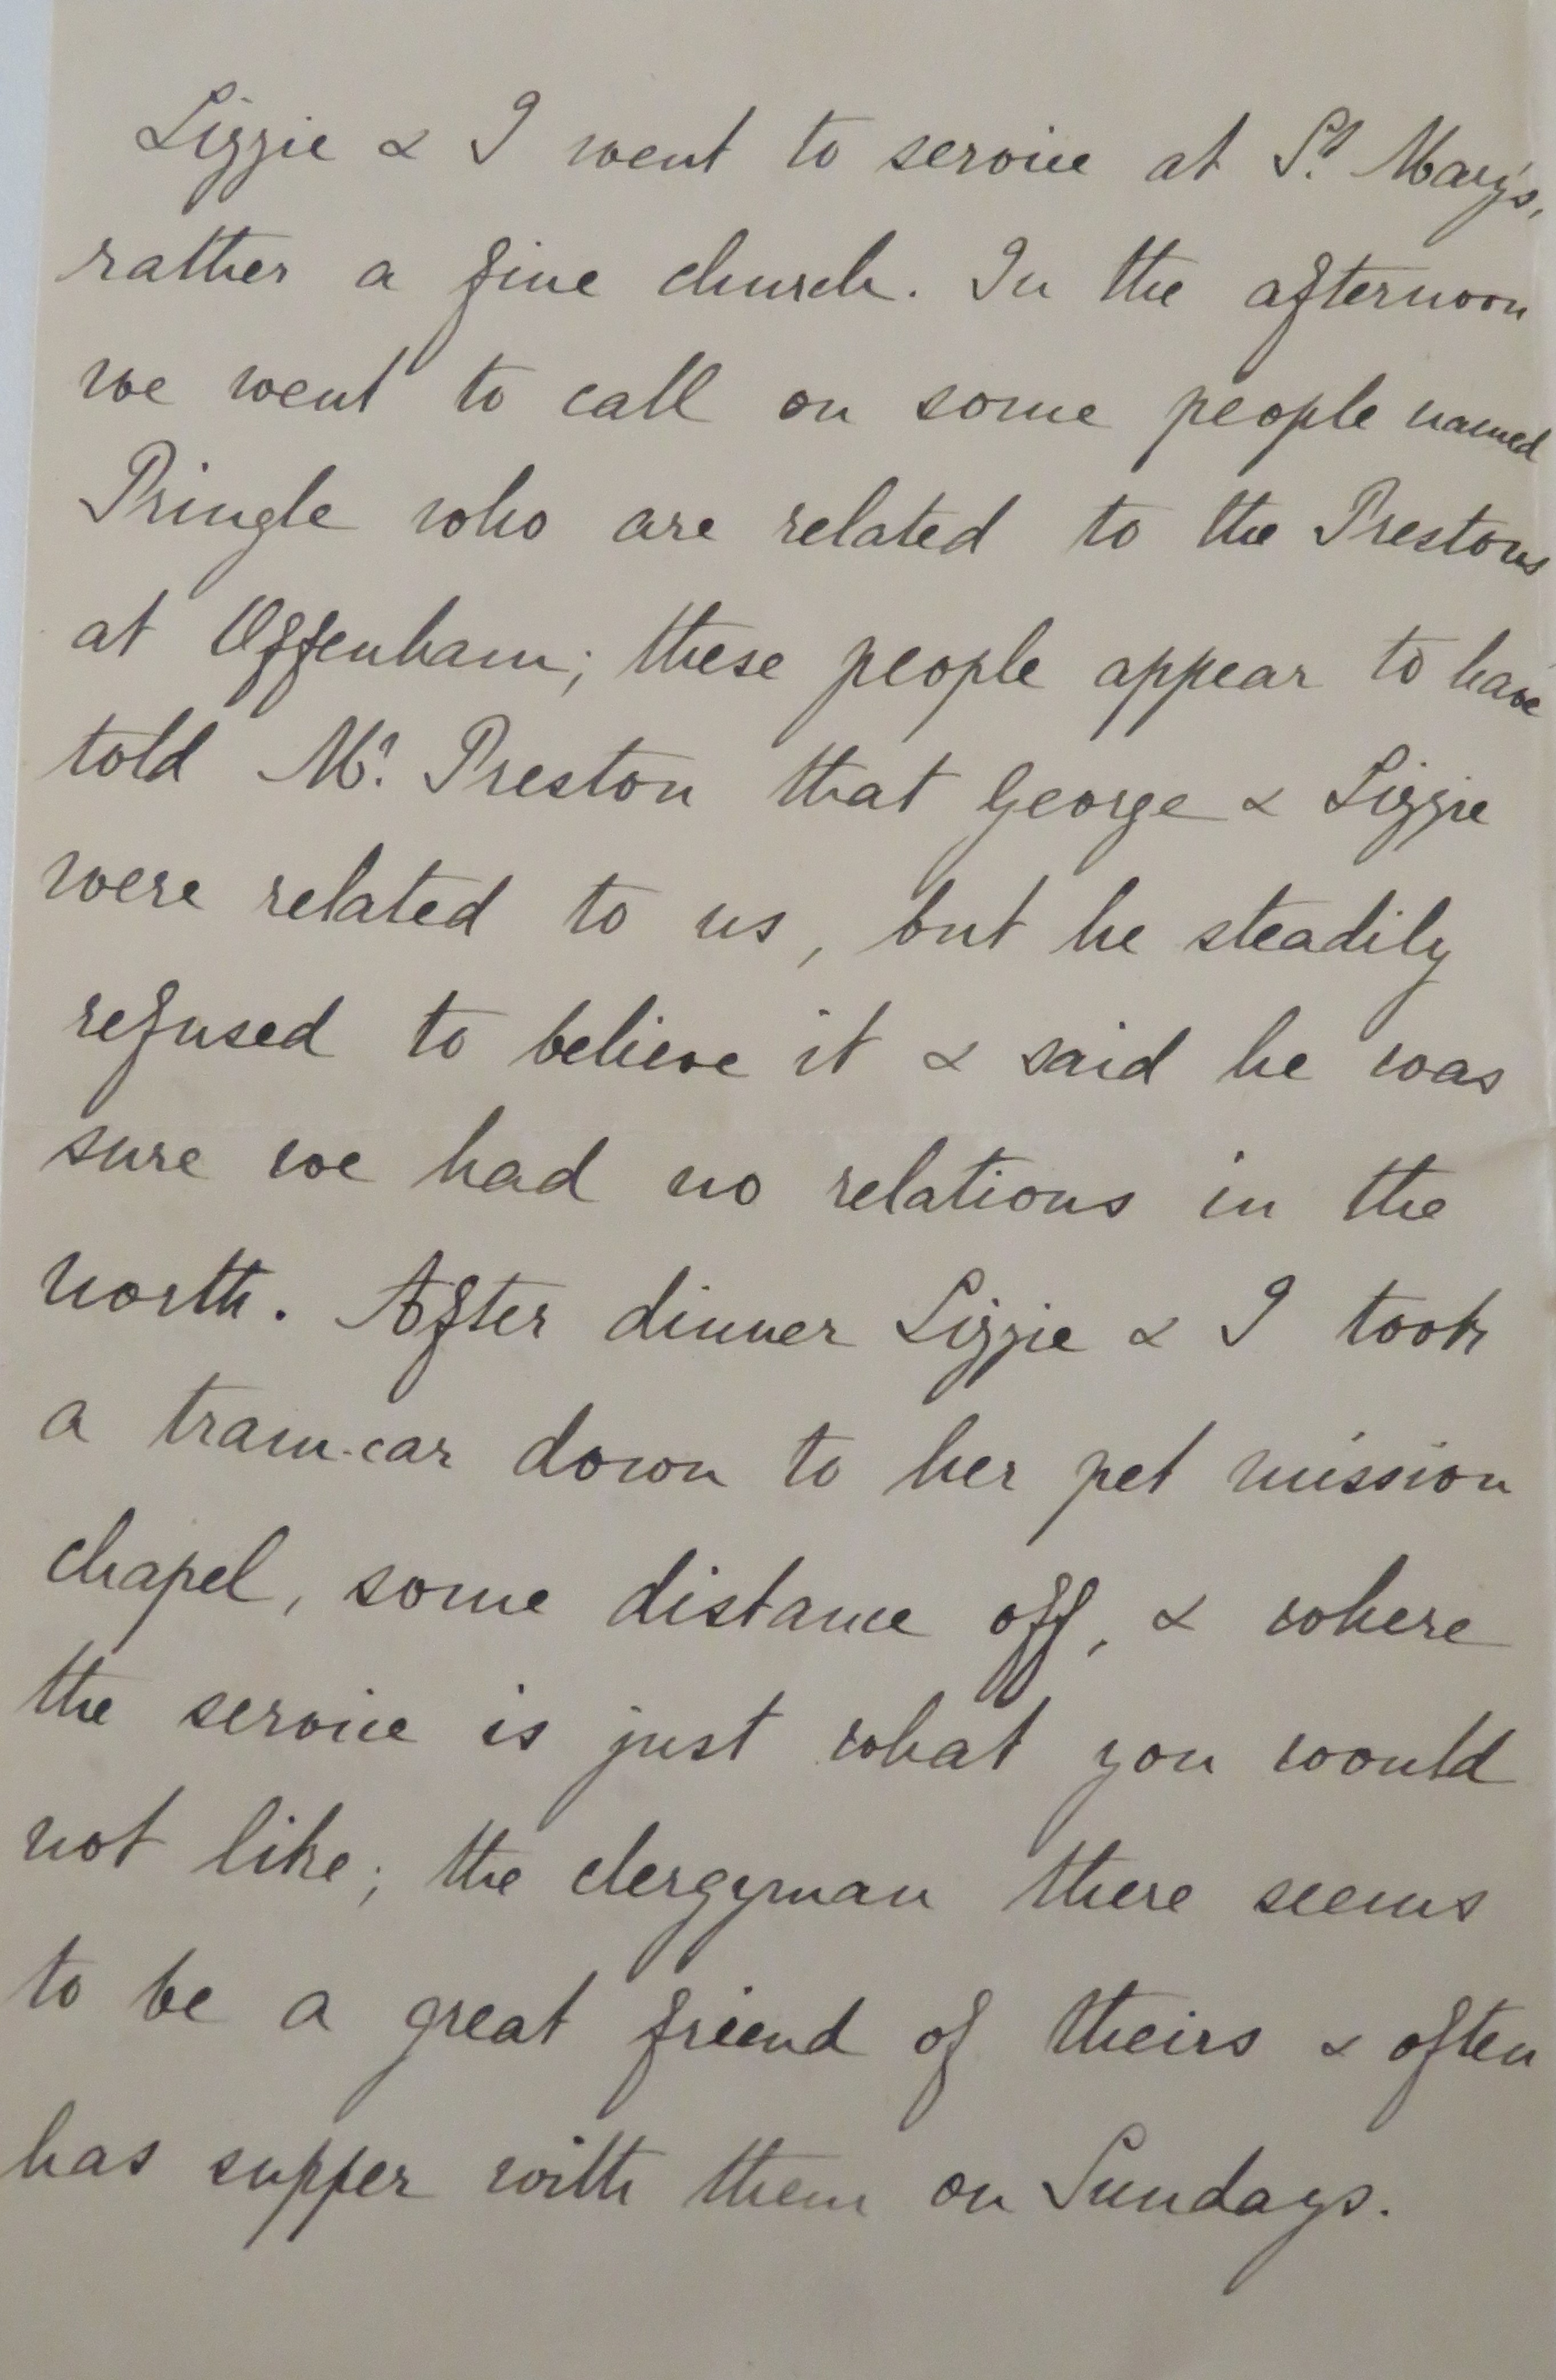 Lizzie & I went to service at St. Mary's,
rather a fine church. In the afternoon
we went to call on some people named
Pringle who are related to the Prestons
at Offenham; these people appear to have
told Mr. Preston that George & Lizzie
were related to us, but he steadily
refused to believe it & said he was
sure we had no relations in the
north. After dinner Lizzie & I took
a tram-car down to her pet mission
chapel, some distance off, & where
the service is just what you would
not like; the clergyman there seems
to be a great friend of theirs & often
has supper with them on Sundays.